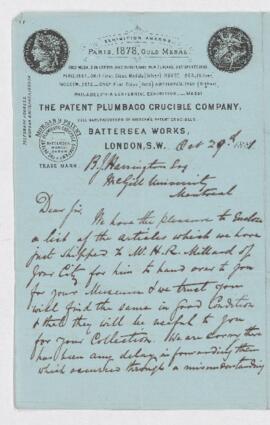 EXHIBITION AWARDS.
PARIS, 1878, GOLD MEDAL
THE PATENT PLUMBAGO CRUCIBLE COMPANY,
SOLE MANUFACTURERS OF MORGAN'S PATENT CRUCIBLES
BATTERSEA WORKS,
LONDON, S.W. Oct 29th
MORGAN'S PATENT
BATTERSEA
WORKS
LONDON
TRADE MARK
B J Harrington Esq
McGill University
Montreal
Dear Sir,
We have the pleasure to enclose
a list of the articles which we have
just shipped to Mr H. R. Millard of
your City for him to hand over to you
for your Museum & we trust you
will find the same in good condition
& that they will be useful to you
for your Collection. We are sorry there
has been any delay in forwarding them
which occurred through a misunderstanding